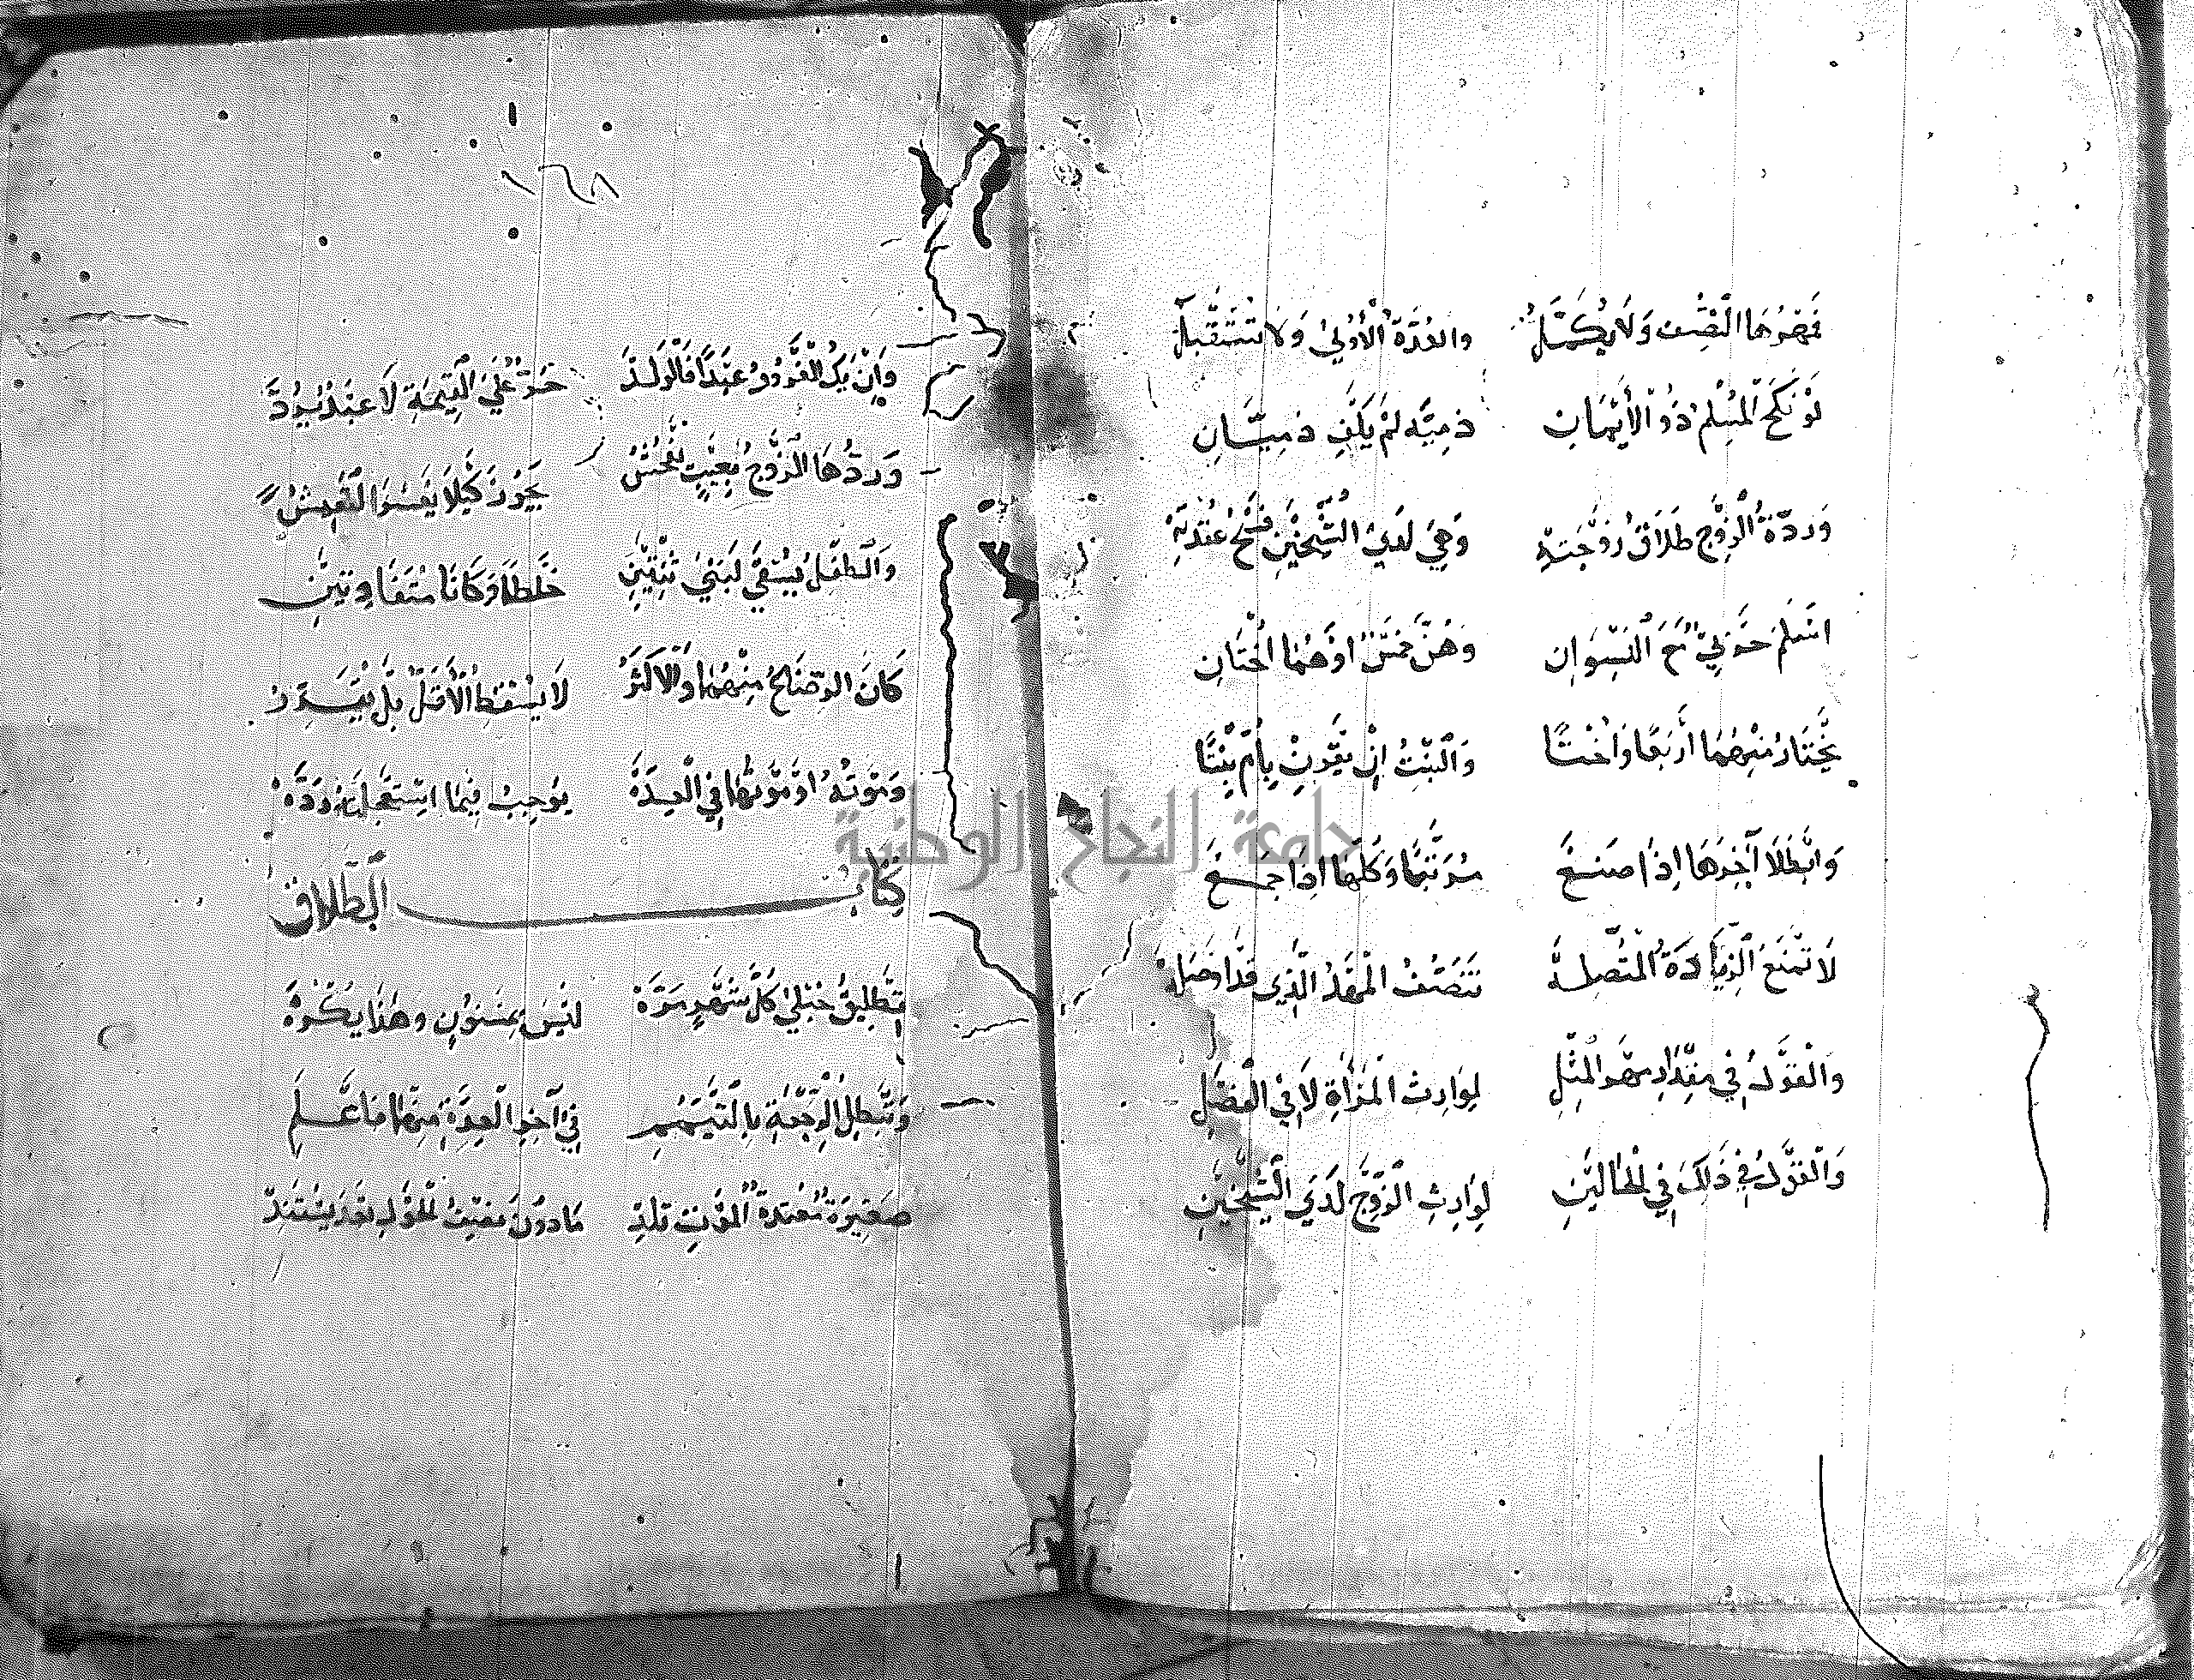 فَمَهْرُهَا النِّصْفُ وَلَا يُكَمَّلُ والعِدَّةُ الْأُولَى وَلَا تُسْتَقْبَلُ
لَوْ نَكَحَ الْمُسْلِمُ ذُو الْأَيْمَانِ ذِمِّيَّةً لَمْ يَكْفِ ذِمِّيَّانِ
وَرِدَّةُ الزَّوْجِ طَلَاقُ زَوْجَتِهْ وَهِيَ لَدَى الشَّيْخَيْنِ فَسْخُ عُقْدَتِهْ
اسْلَمَ حَرْبِيٌّ مَعَ النِّسْوَانِ وَهُنَّ خَمْسٌ اوْ هُمَا اخْتَانِ
يَخْتَارُ مِنْهُمَا أَرْبَعًا وَاخْتَا وَالْبِنْتُ انْ يُقْرَنْ بِأُمٍّ بِنْتَا
وَابْطَلَا آخِرَهَا اِذَا صَنَعْ مُرَتَّبًا وَكُلَّهَا اِذَا جَمَعْ
لَا تَمْنَعُ الزِّيَادَةُ الْمُتَّصِلَهْ تَنَصُّفَ الْمَهْرِ الَّذِي قَدْ اوْصَلَهْ
وَالْقَوْلُ فِي مِقْدَارِ مَهْرِ الْمِثْلِ لِوَارِثِ الْمَرْأَةِ لَا فِي الْفَضْلِ
وَالْقَوْلُ فِي ذَلِكَ فِي الْحَالَيْنِ لِوَارِثِ الزَّوْجِ لَدَى الشَّيْخَيْنِ
١٦٨
وَاِنْ يَكُ الْمَغْرُورُ عَبْدًا فَالْوَلَدْ حُرٌّ عَلَى الْقِيمَةِ لَا عَبْدٌ يُرَدّ
وَرَدُّهَا الزَّوْجُ بِعَيْبٍ يَفْحُشُ يَجُوزُ كَيْلَا يَفْسُدَ التَّعَيُّشُ
وَالطِّفْلُ يُسْقَى لَبَنَيْ ثِنْتَيْنِ خُلِطَا وَكَانَا مُتَفَاوِتَيْنِ
كَانَ الرِّضَاعُ مِنْهُمَا وَالْاكْثَرُ لَا يُسْقِطُ الْأَقَلَّ بَلْ يُقَرِّرُ
وَمَوْتُهُ اوْ مَوْتُهَا فِي الْعِدَّهْ يُوجِبُ فِيمَا اسْتَعْجَلَتْهُ رَدَّهْ
كِتَابُ الطَّلَاقِ
تَطْلِيقُ حُبْلَى كُلَّ شَهْرٍ مَرَّهْ لَيْسَ بِمَسْنُونٍ وَهٰذَا يُكْرَهْ
وَتَبْطُلُ الرَّجْعَةُ بِالتَّيَمُّمِ فِي آخِرِ الْعِدَّةِ مِنْهَا فَاعْلَمِ
صَغِيرَةٌ مُعْتَدَّةُ الْمَوْتِ تَلِدْ مَا دُونَ الْحَوْلِ